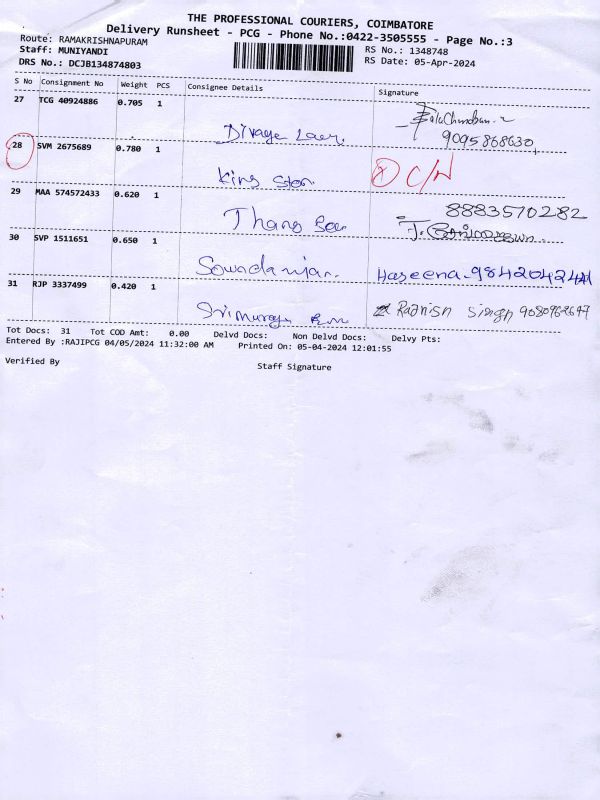 THE PROFESSIONAL COURIERS, COIMBATORE
Delivery Runsheet - PCG - Phone No.:0422-3505555 - Page No.:3
Route: RAMAKRISHNAPURAM
RS No.: 1348748
Staff: MUNIYANDI
RS Date: 05-Apr-2024
DRS No.: DCJB134874803
S No Consignment No Weight PCS Consignee Details Signature
27 TCG 40924886 0.705 1
9095868630
28 SVM 2675689 0.780 1 King Ston
29 MAA 574572433 0.620 1 8883570282
30 SVP 1511651 0.650 1 Haseena
31 RJP 3337499 0.420 1 Rajnish Singh
Tot Docs: 31 Tot COD Amt: 0.00 Delvd Docs: Non Delvd Docs: Delvy Pts:
Entered By :RAJIPCG 04/05/2024 11:32:00 AM Printed On: 05-04-2024 12:01:55
Verified By
Staff Signature